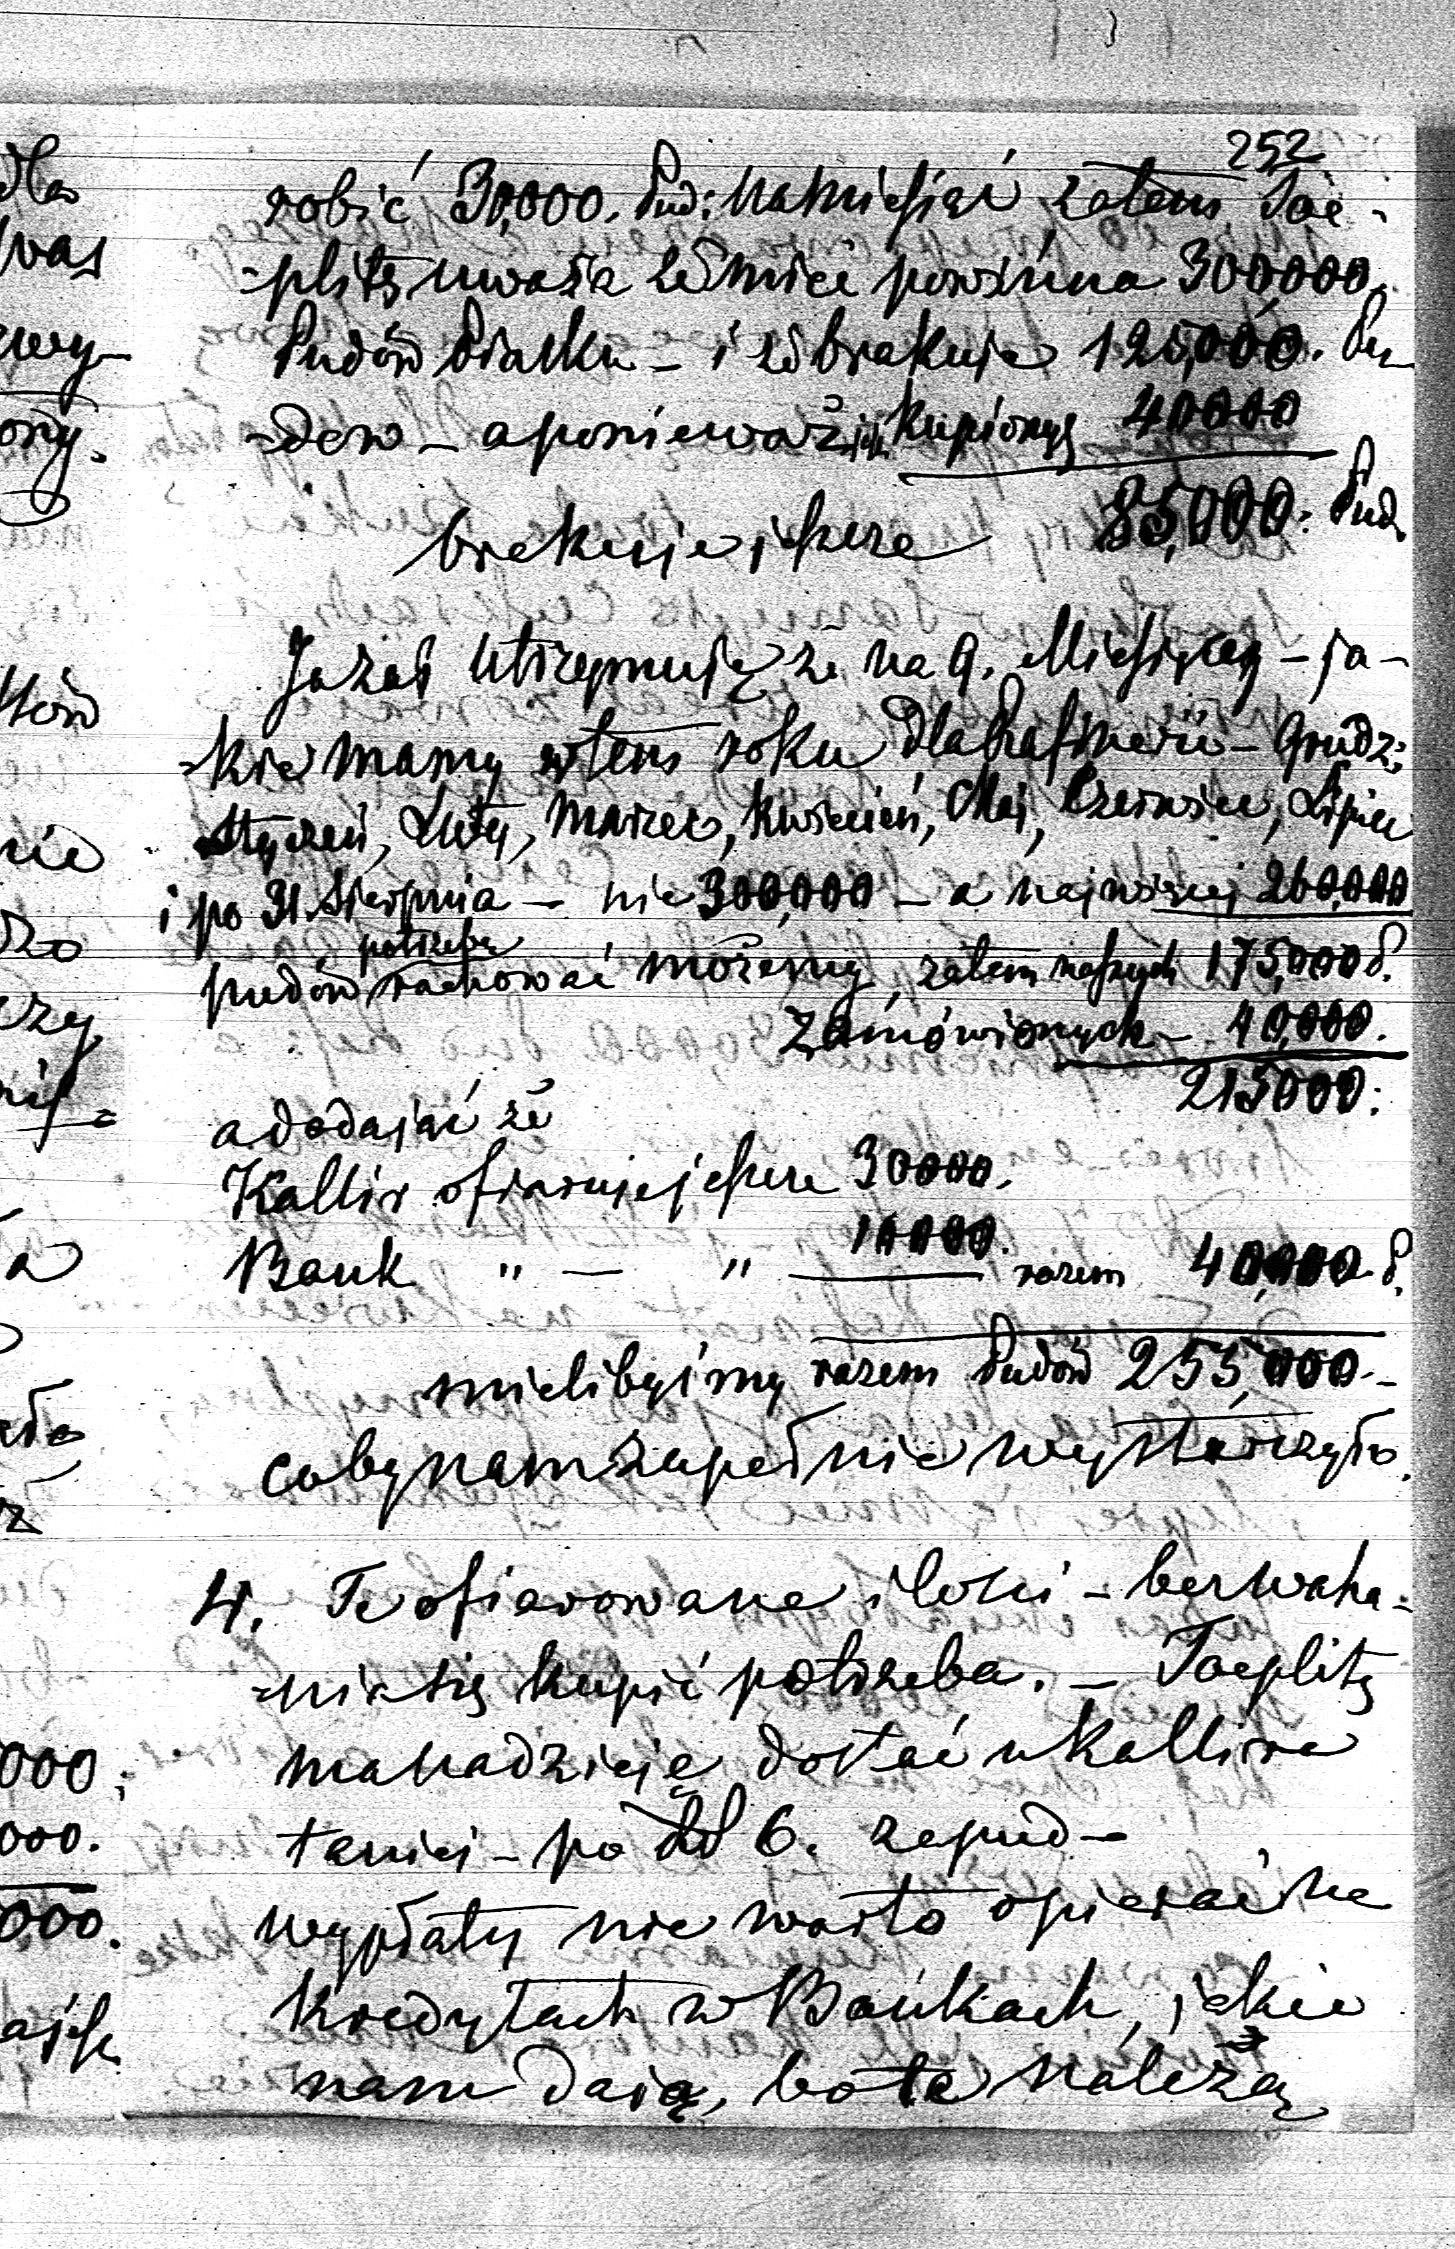 252
robić 30,000. Pud: na miesiąc zatem Toe-
-plitz uważa że mieć powinna 300000.
Pudów Piasku – i że brakuje 125,000. Pu-
-dów – a ponieważ jej kupiony 40000
brakuje jeszcze 85,000. Pud.
Ja zaś utrzymuję że na 9. Miesięcy – ja-
-kie mamy w tem roku dla Rafinerii – Grudz:
Styczeń, Luty, Marzec, Kwiecień, Maj, Czerwiec, Lipiec
i po 31. Sierpnia – nie 300,000 – a najwięcej 260,000
potrzebę
pudów rachować możemy, zatem naszych 175,000 P.
Zamówionych – 40,000.
215000.
a dodając że
Kallir ofiaruje jeszcze 30000.
Bank " — " 10000. razem 40,000. P.
mielibyśmy razem Pudów 255,000 –
coby nam zupełnie wystarczyło.
4. Te ofiarowane ilości – bez waha-
-nia się kupić potrzeba. – Toeplitz
ma nadzieję dostać u Kallira
taniej – po 6. za pud –
wypłaty nie warto opierać na
kredytach w Bankach, jakie
nam dają, bo te należą
dla
was
zwy-
ttów
nie
000;
000.
000.